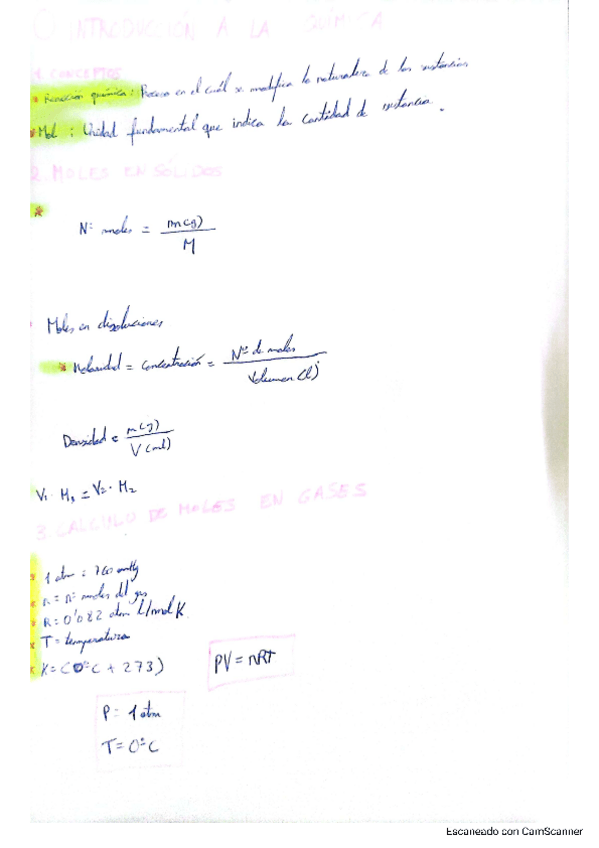 INTRODUCCIÓN A LA QUÍMICA
1. CONCEPTOS
* Reacción química: Proceso en el cuál se modifica la naturaleza de las sustancias
* Mol : Unidad fundamental que indica la cantidad de sustancia.
2. MOLES EN SÓLIDOS
*
Nº moles = m(g) / M
Moles en disoluciones
* Molaridad = concentración = Nº de moles / Volumen (l)
Densidad = m(g) / V(ml)
V1 · M1 = V2 · M2
3. CALCULO DE MOLES EN GASES
* 1 atm = 760 mmHg
* n = nº moles del gas
* R = 0'082 atm l/mol K
* T = temperatura
* K = (0ºC + 273)
PV = nRT
P = 1 atm
T = 0ºC
Escaneado con CamScanner